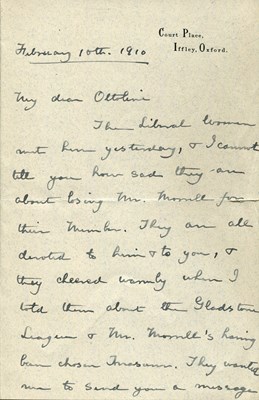 Court Place,
Iffley, Oxford.
February 10th. 1910
My dear Ottoline
The Liberal Women
met here yesterday, & I cannot
tell you how sad they are
about losing Mr. Morrell for
their Member. They are all
devoted to him & to you, &
they cheered warmly when I
told them about the Gladstone
League & Mr. Morrell's having
been chosen Treasurer. They wanted
me to send you a message